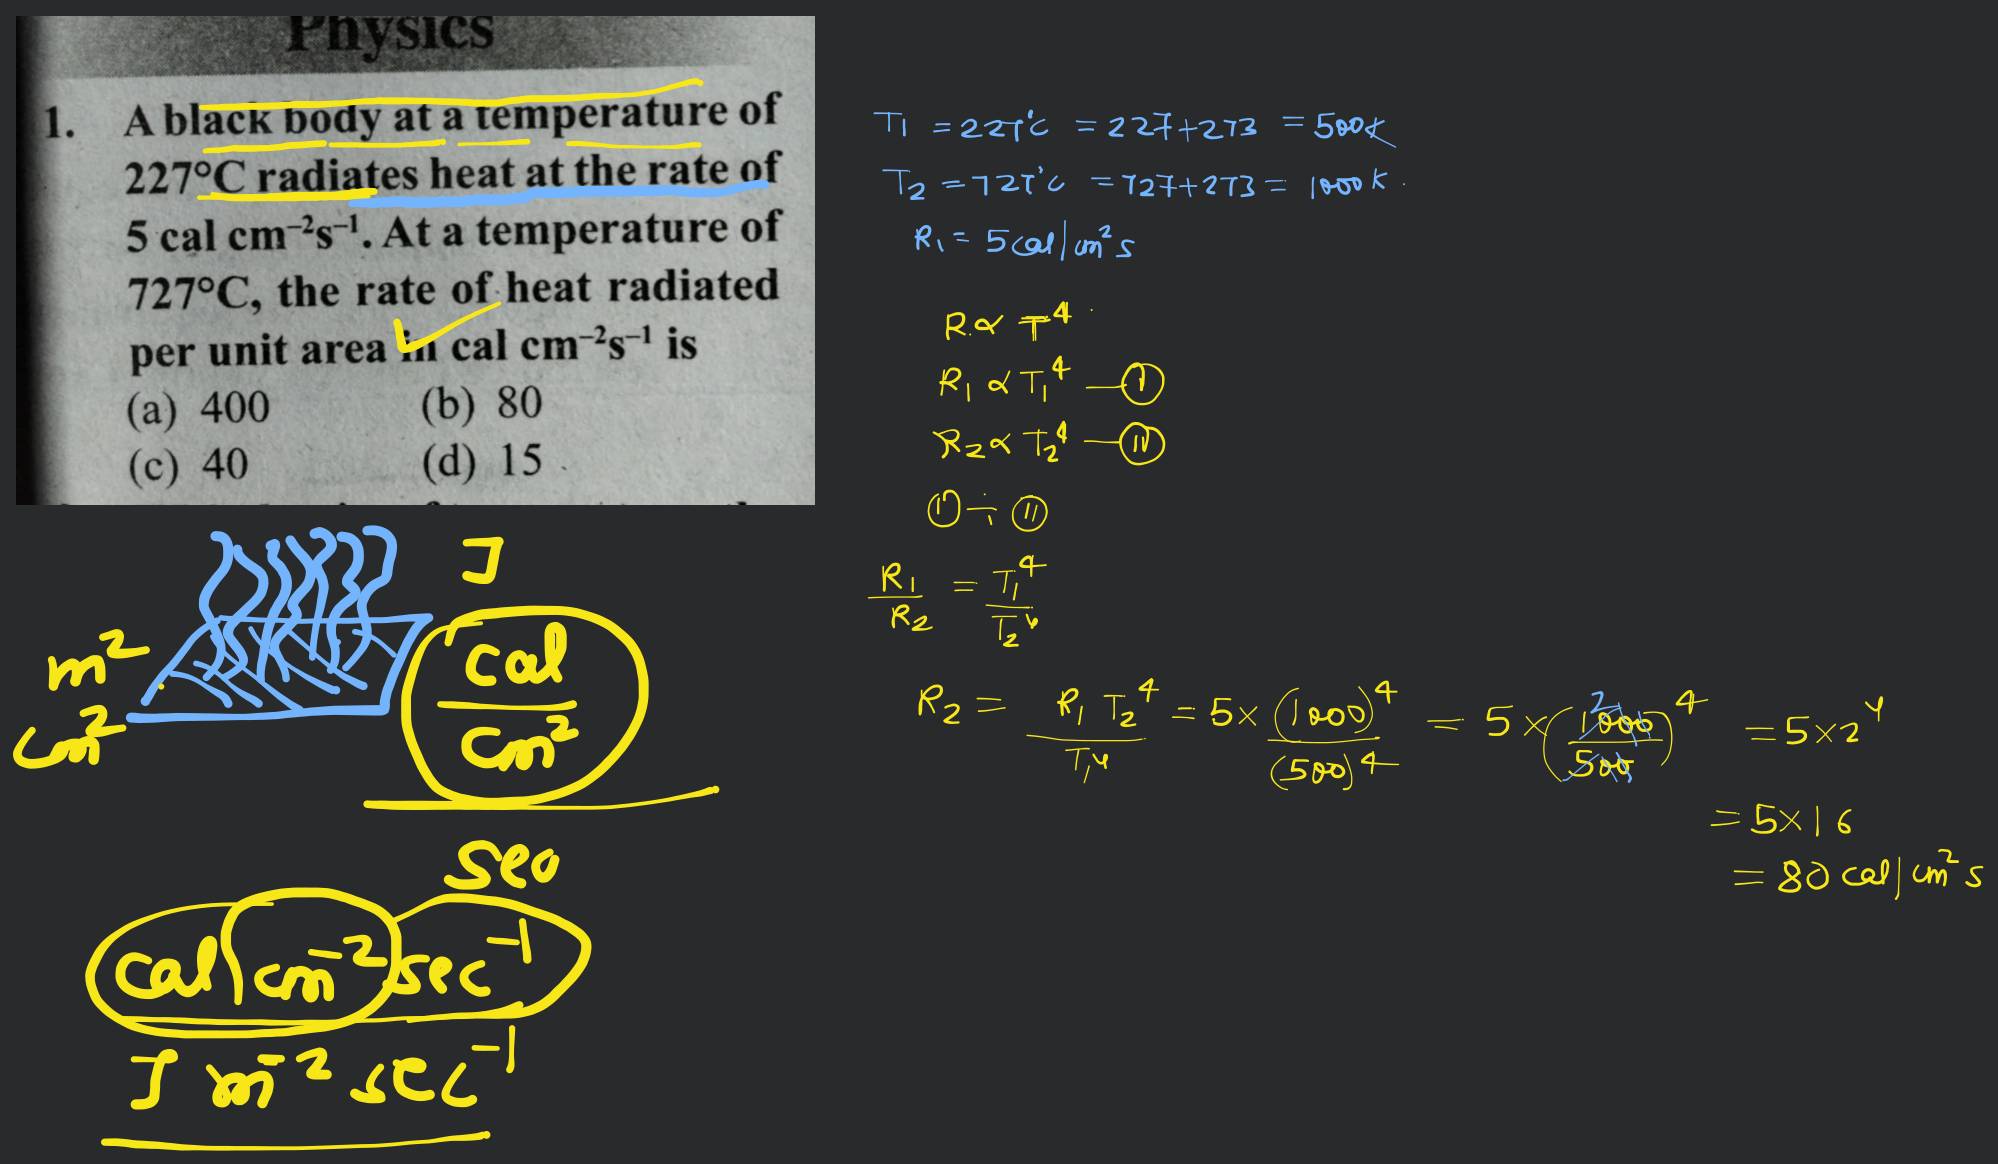 Physics
1. A black body at a temperature of
227°C radiates heat at the rate of
5 cal cm⁻²s⁻¹. At a temperature of
727°C, the rate of heat radiated
per unit area in cal cm⁻²s⁻¹ is
(a) 400 (b) 80
(c) 40 (d) 15
J
m²
cm²
cal
cm²
sec
cal cm⁻² sec⁻¹
J m⁻² sec⁻¹
T₁ = 227°C = 227+273 = 500K
T₂ = 727°C = 727+273 = 1000K.
R₁ = 5 cal/cm² s
R ∝ T⁴
R₁ ∝ T₁⁴ — (I)
R₂ ∝ T₂⁴ — (II)
(I) ÷ (II)
R₁/R₂ = T₁⁴/T₂⁴
R₂ = R₁ T₂⁴/T₁⁴ = 5 × (1000)⁴/(500)⁴ = 5 × (1000/500)⁴ = 5×2⁴
2
= 5×16
= 80 cal/cm² s